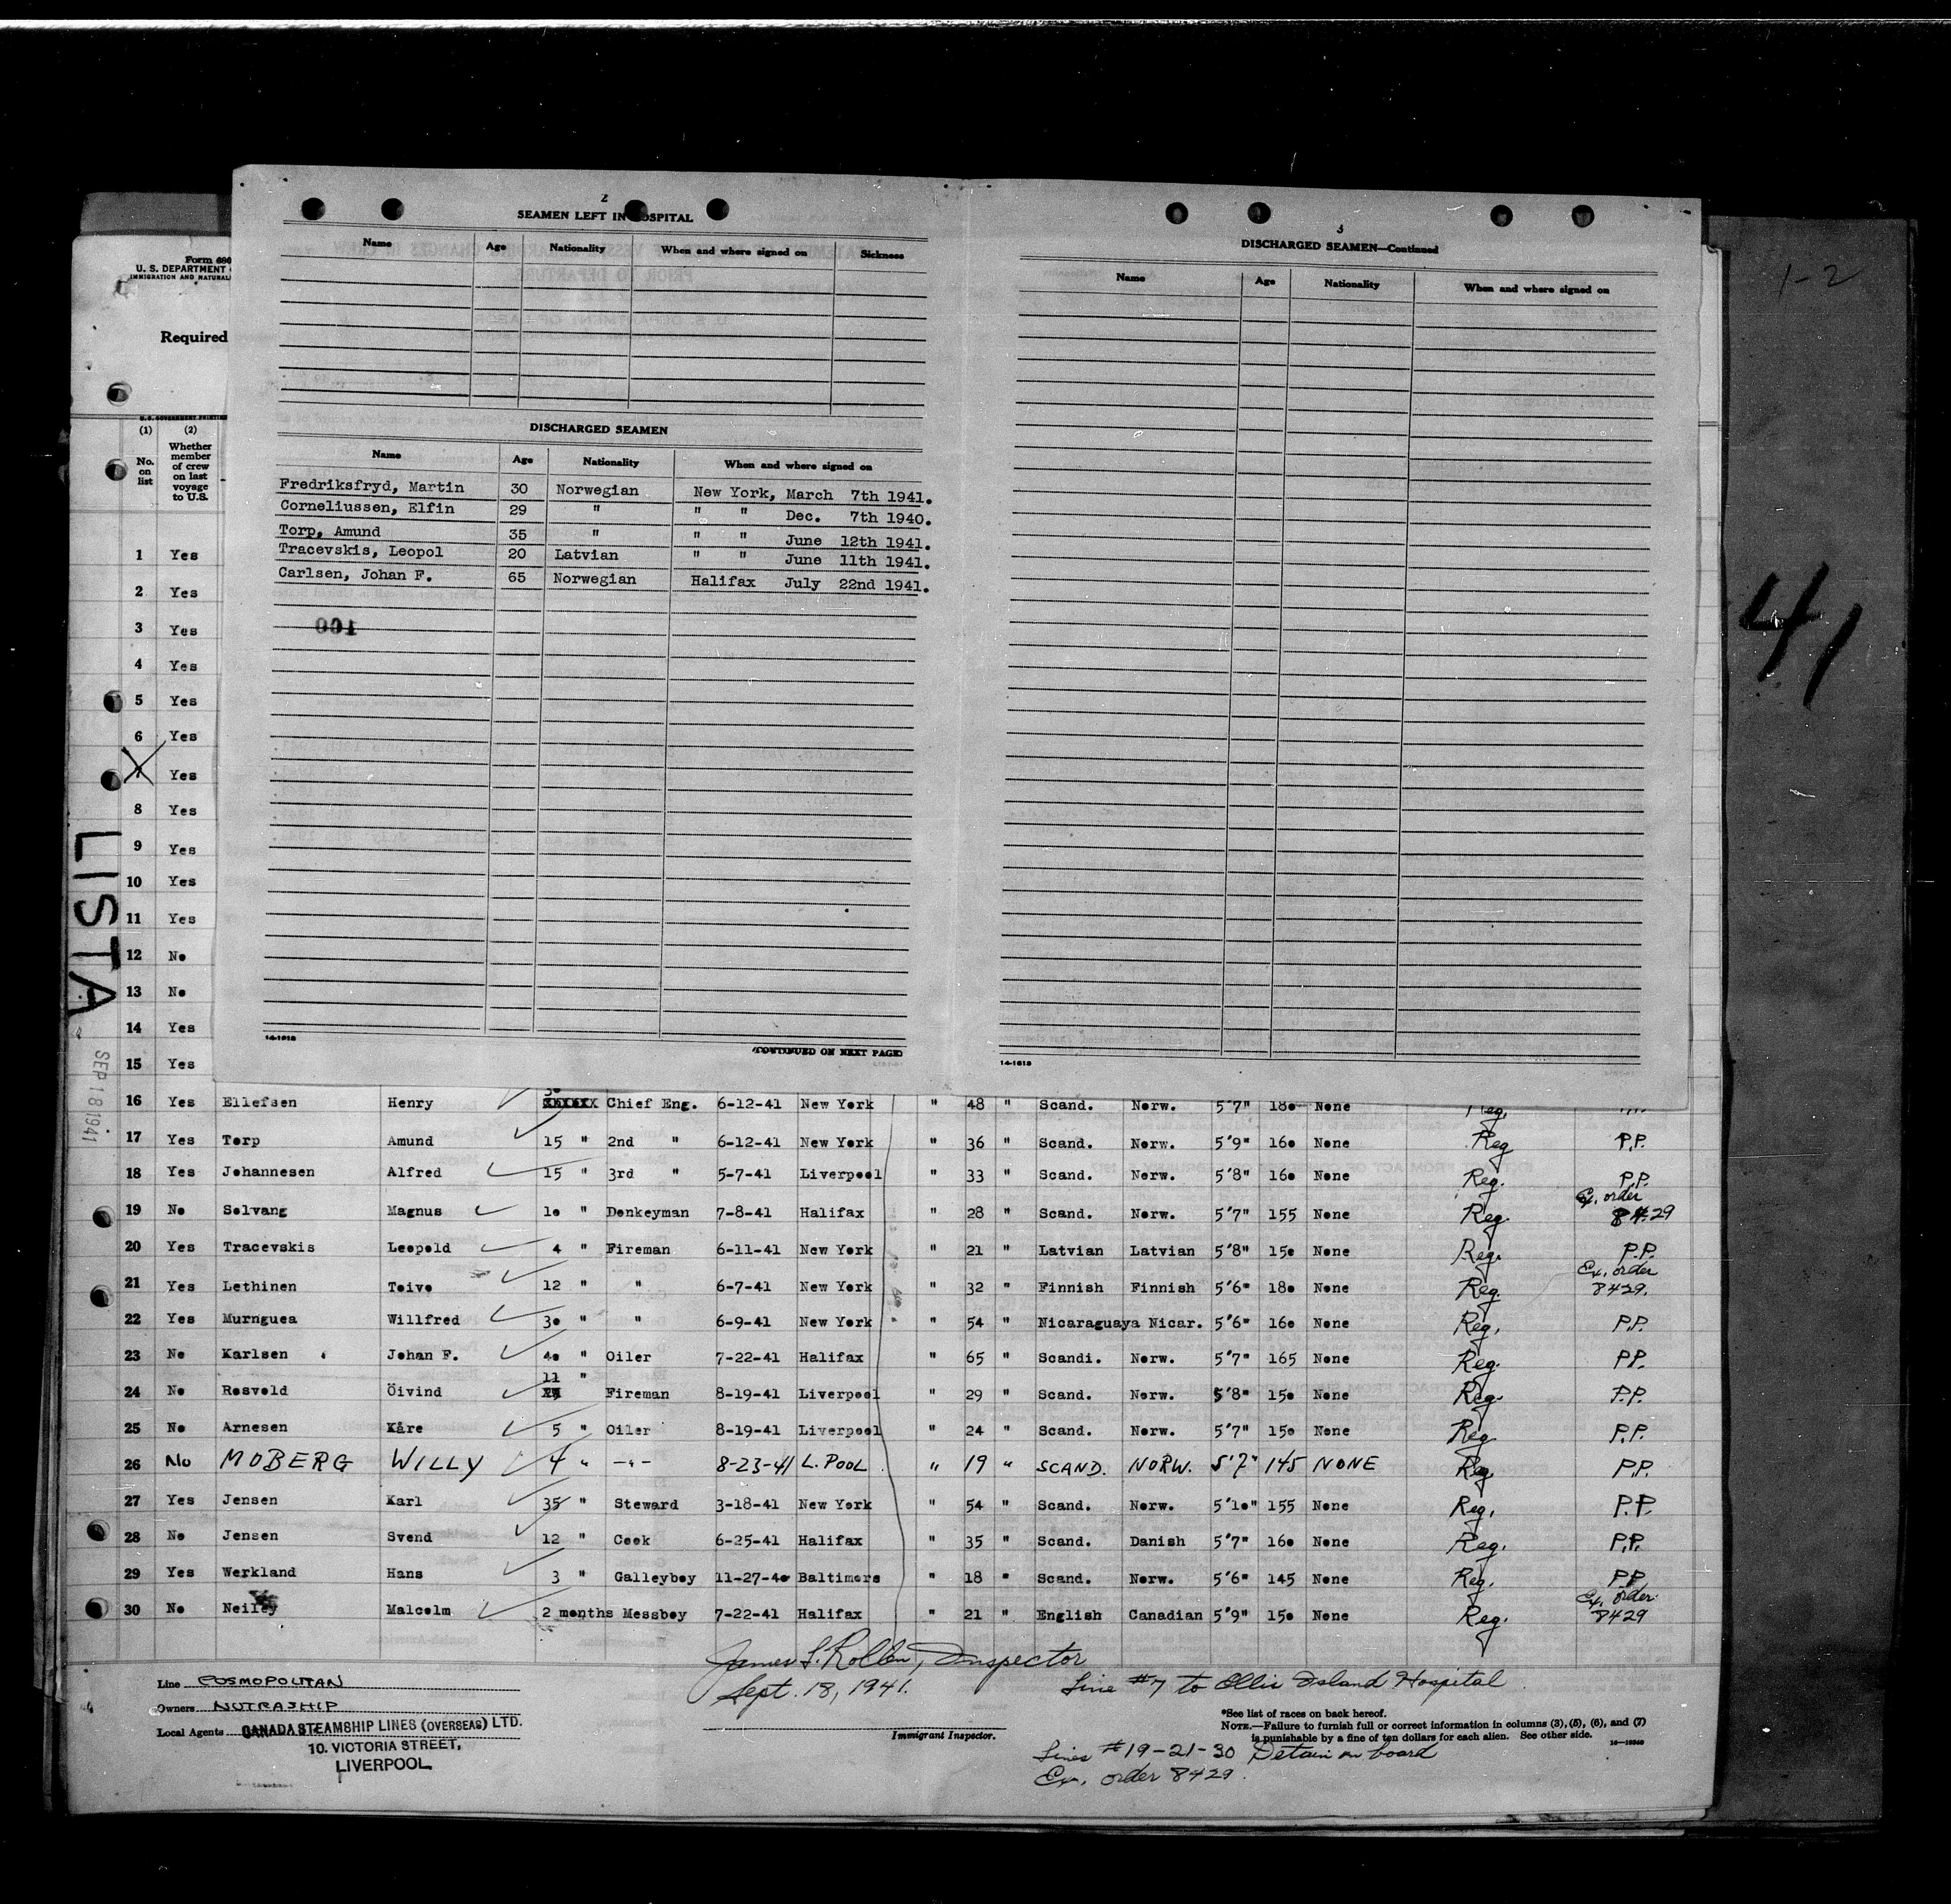 1-2
41
2
SEAMEN LEFT IN HOSPITAL
Name Age Nationality When and where signed on Sickness
DISCHARGED SEAMEN
Name Age Nationality When and where signed on
Fredriksfryd, Martin 30 Norwegian New York, March 7th 1941.
Corneliussen, Elfin 29 " " " Dec. 7th 1940.
Torp, Amund 35 " " " June 12th 1941.
Tracevskis, Leopol 20 Latvian " " June 11th 1941.
Carlsen, Johan F. 65 Norwegian Halifax July 22nd 1941.
14-1618
(CONTINUED ON NEXT PAGE)
3
DISCHARGED SEAMEN—Continued
Name Age Nationality When and where signed on
14-1618
Form 680
U. S. DEPARTMENT
IMMIGRATION AND NATURAL
Required
U.S. GOVERNMENT PRINTING
(1) (2)
No. on list
Whether member of crew on last voyage to U.S.
1 Yes
2 Yes
3 Yes
4 Yes
5 Yes
6 Yes
7 Yes
8 Yes
9 Yes
10 Yes
11 Yes
12 No
13 No
14 Yes
15 Yes
LISTA
SEP 18 1941
16 Yes Ellefsen Henry Chief Eng. 6-12-41 New York " 48 " Scand. Norw. 5'7" 180 None Reg.
17 Yes Torp Amund 15 " 2nd " 6-12-41 New York " 36 " Scand. Norw. 5'9" 160 None Reg P.P.
18 Yes Johannesen Alfred 15 " 3rd " 5-7-41 Liverpool " 33 " Scand. Norw. 5'8" 160 None Reg. P.P.
19 No Solvang Magnus 10 " Donkeyman 7-8-41 Halifax " 28 " Scand. Norw. 5'7" 155 None Reg. Ex. order 8429
20 Yes Tracevskis Leopold 4 " Fireman 6-11-41 New York " 21 " Latvian Latvian 5'8" 150 None Reg. P.P.
21 Yes Lethinen Toivo 12 " " 6-7-41 New York " 32 " Finnish Finnish 5'6" 180 None Reg. Ex. order 8429.
22 Yes Murnguea Willfred 30 " " 6-9-41 New York " 54 " Nicaraguaya Nicar. 5'6" 160 None Reg. P.P.
23 No Karlsen Johan F. 40 " Oiler 7-22-41 Halifax " 65 " Scandi. Norw. 5'7" 165 None Reg. P.P.
24 No Rosvold Öivind 11 " Fireman 8-19-41 Liverpool " 29 " Scand. Norw. 5'8" 150 None Reg. P.P.
25 No Arnesen Kåre 5 " Oiler 8-19-41 Liverpool " 24 " Scand. Norw. 5'7" 150 None Reg P.P.
26 No MOBERG WILLY 4 " -"- 8-23-41 L.POOL " 19 " SCAND. NORW. 5'7" 145 NONE Reg. P.P.
27 Yes Jensen Karl 35 " Steward 3-18-41 New York " 54 " Scand. Norw. 5'10" 155 None Reg. P.P.
28 No Jensen Svend 12 " Cook 6-25-41 Halifax " 35 " Scand. Danish 5'7" 160 None Reg. P.P.
29 Yes Werkland Hans 3 " Galleyboy 11-27-40 Baltimore " 18 " Scand. Norw. 5'6" 145 None Reg. P.P.
30 No Neiley Malcolm 2 months Messboy 7-22-41 Halifax " 21 " English Canadian 5'9" 150 None Reg. Ex. order 8429
James S. Rollen, Inspector
Sept. 18, 1941.
Immigrant Inspector.
Line COSMOPOLITAN
Owners NOTRASHIP
Local Agents CANADA STEAMSHIP LINES (OVERSEAS) LTD.
10. VICTORIA STREET,
LIVERPOOL
Line #7 to Ellis Island Hospital
*See list of races on back hereof.
NOTE.—Failure to furnish full or correct information in columns (3), (5), (6), and (7)
is punishable by a fine of ten dollars for each alien. See other side.
Lines #19-21-30 Detain on board
Ex. order 8429.